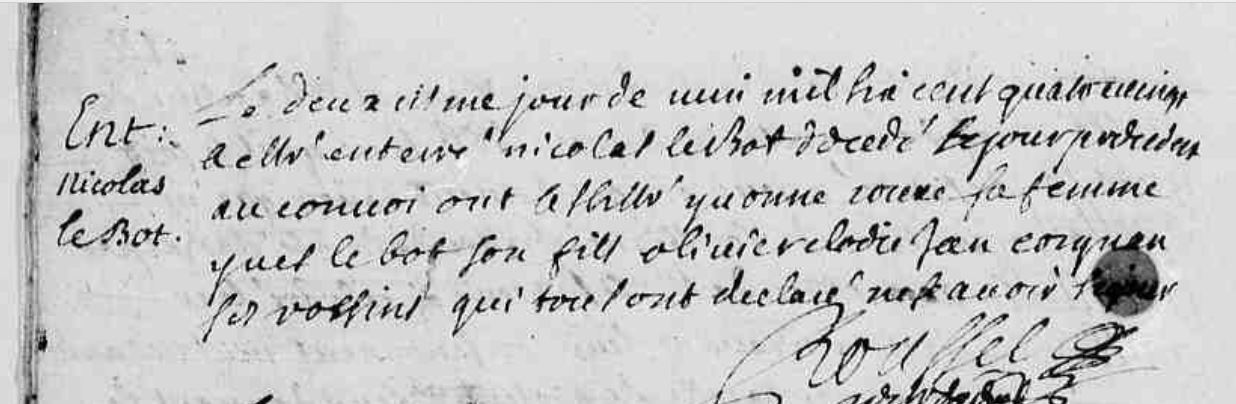 Ent:
nicolas
le Bot.
Le deuxiesme jour de mai mil six cent quatrevingt
a esté enterré nicolas le Bot decedé le jour precedent
au convoi ont assisté yvonne sa femme
yves le bot son fils olivier jean
ses voisins qui tous ont declaré ne sçavoir signer
Roussel